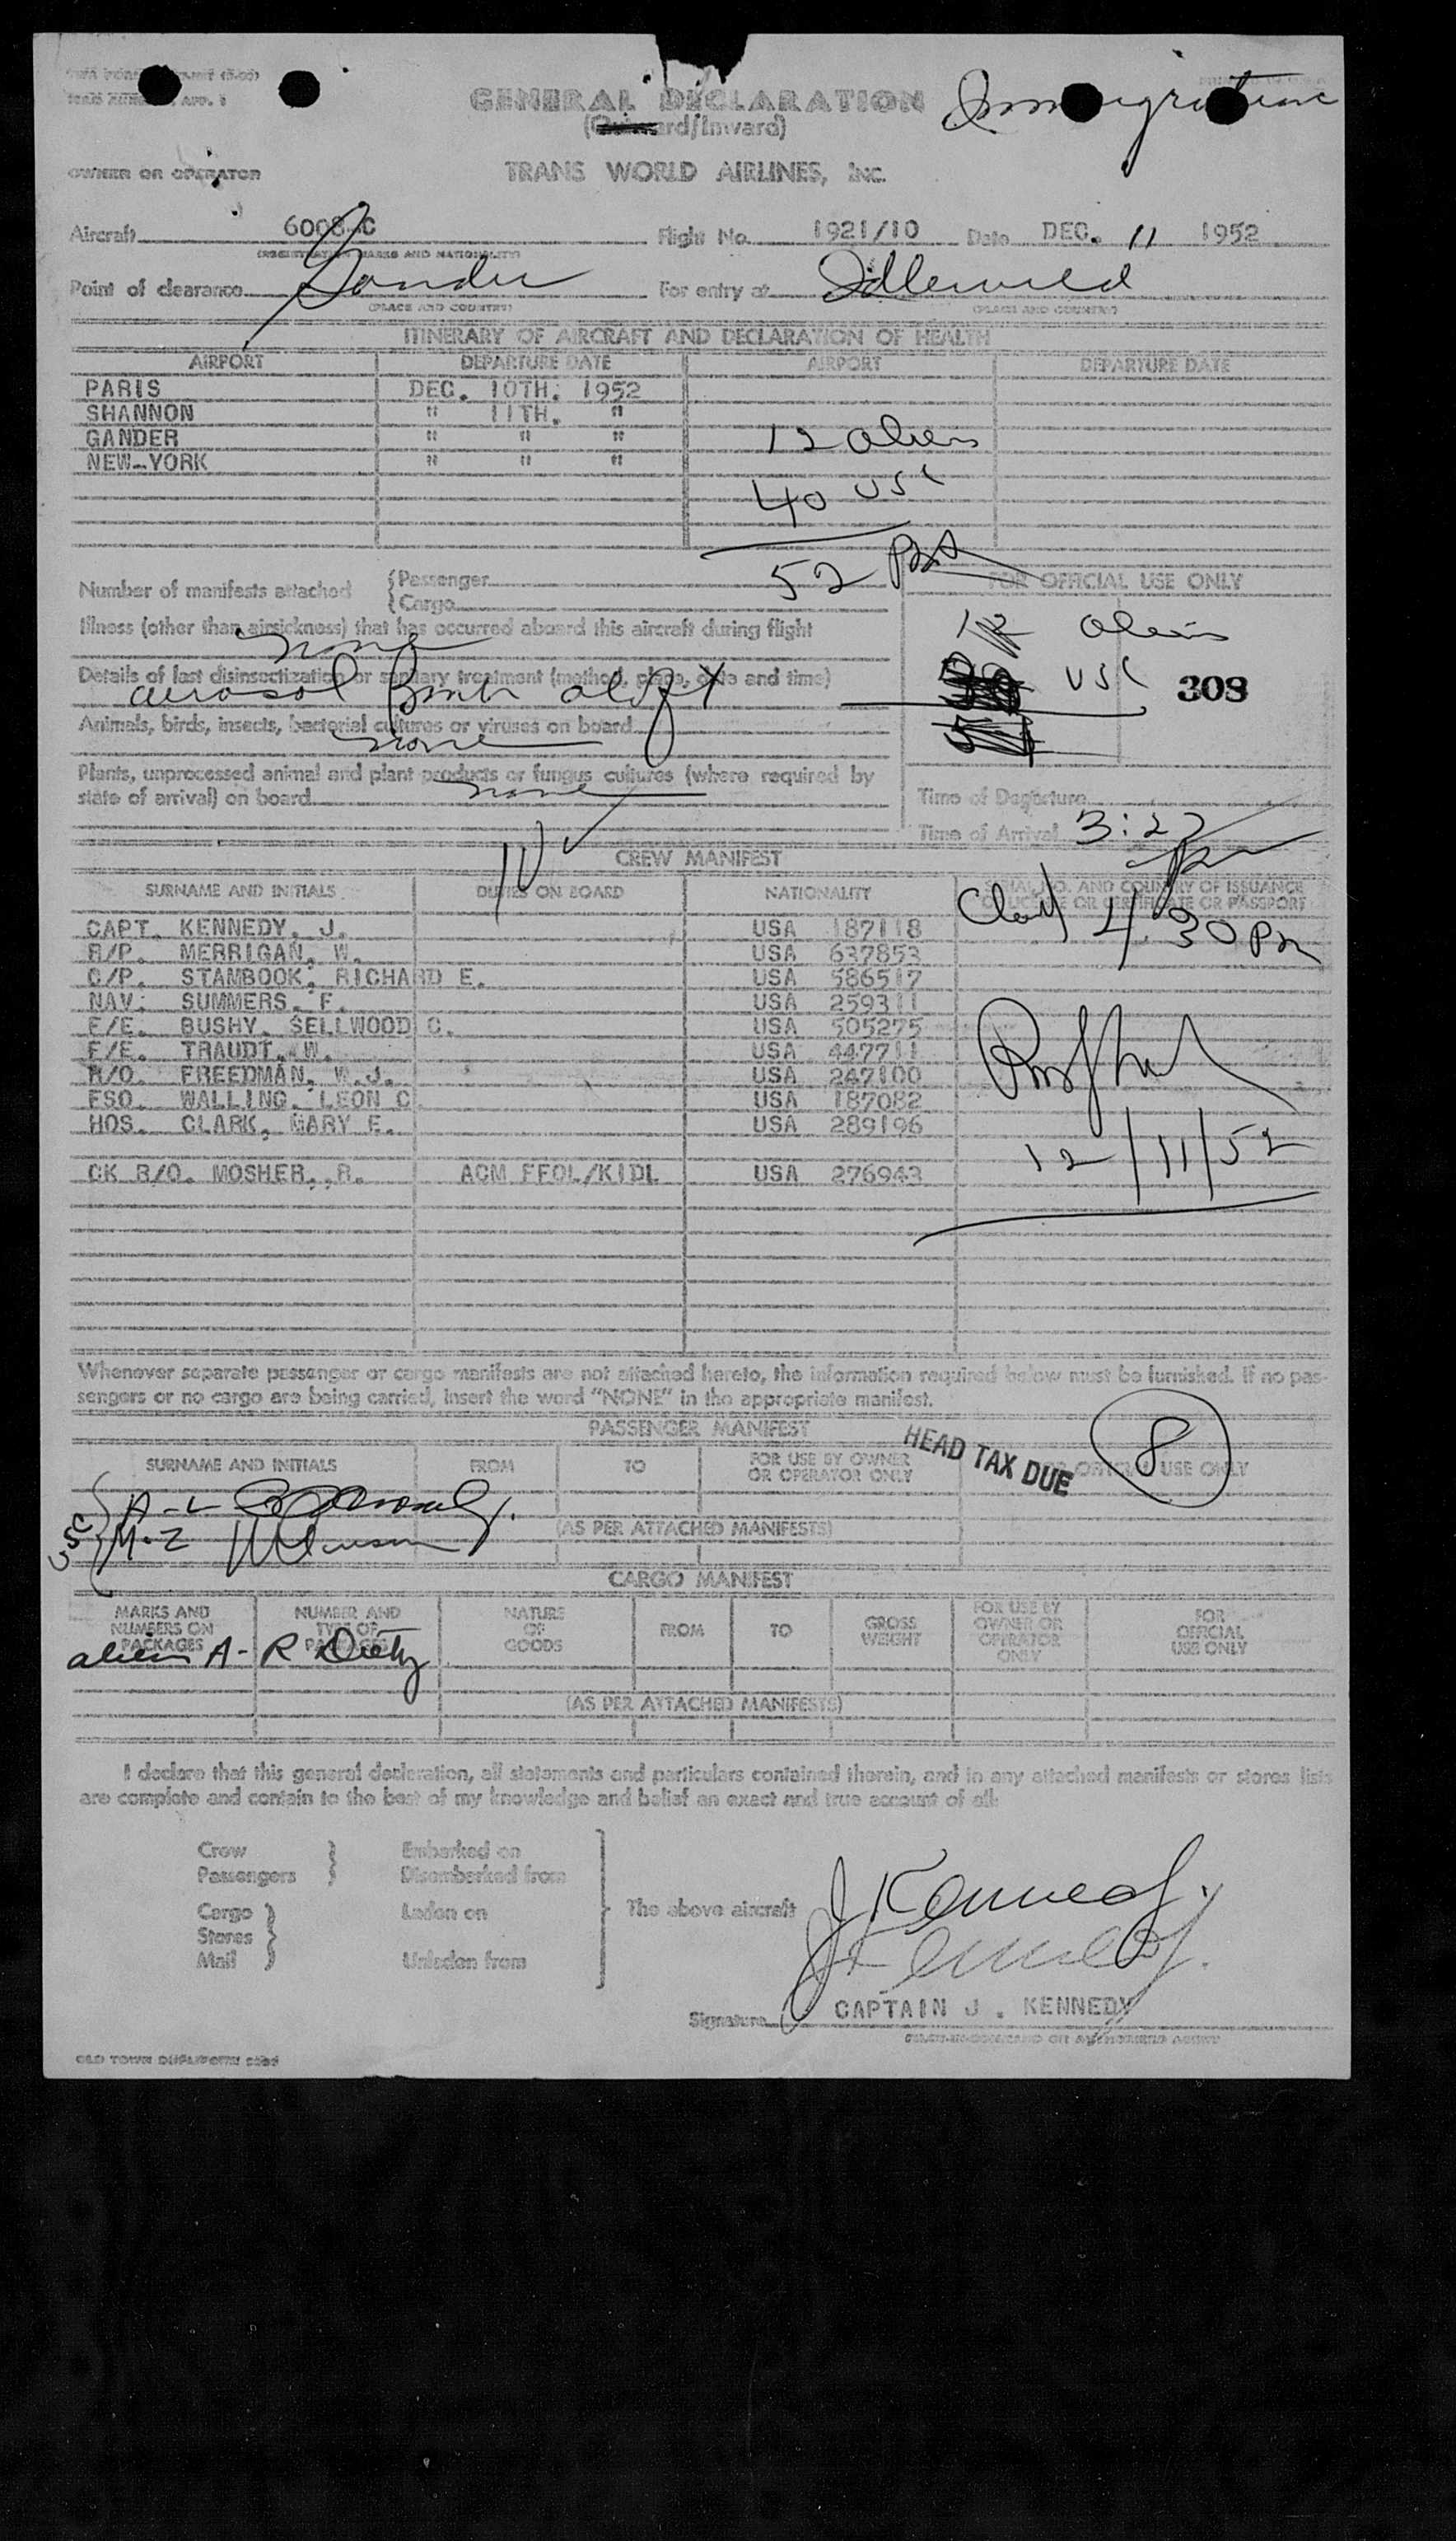 GENERAL DECLARATION
Immigration
(Outward/Inward)
OWNER OR OPERATOR
TRANS WORLD AIRLINES, INC.
Aircraft 6008-C Flight No. 1921/10 Date DEC. 11 1952
(REGISTRATION MARKS AND NATIONALITY)
Point of clearance Gander For entry at Idlewild
(PLACE AND COUNTRY) (PLACE AND COUNTRY)
ITINERARY OF AIRCRAFT AND DECLARATION OF HEALTH
AIRPORT DEPARTURE DATE AIRPORT DEPARTURE DATE
PARIS DEC. 10TH. 1952
SHANNON " 11TH. "
GANDER " " " 12 aliens
NEW-YORK " " "
40 USC
52
FOR OFFICIAL USE ONLY
Number of manifests attached {Passenger
{Cargo
12 aliens
Illness (other than airsickness) that has occurred aboard this aircraft during flight
none
USC 308
Details of last disinsectization or sanitary treatment (method, place, date and time)
aerosol Bomb aloft
Animals, birds, insects, bacterial cultures or viruses on board
none
Plants, unprocessed animal and plant products or fungus cultures (where required by
state of arrival) on board none
Time of Departure
Time of Arrival 3:27 pm
CREW MANIFEST
SURNAME AND INITIALS DUTIES ON BOARD NATIONALITY SERIAL NO. AND COUNTRY OF ISSUANCE
OF LICENSE OR CERTIFICATE OR PASSPORT
4:30 PM
CAPT. KENNEDY, J. USA 187118
R/P. MERRIGAN, W. USA 637853
C/P. STAMBOOK, RICHARD E. USA 586517
NAV. SUMMERS, F. USA 259311
F/E. BUSHY, SELLWOOD C. USA 505275
F/E. TRAUDT, W. USA 447711
R/O. FREEDMAN, W.J. USA 247100
FSO. WALLING, LEON C. USA 187082
HOS. CLARK, MARY E. USA 289196
12/11/52
CK R/O. MOSHER, R. ACM FFOL/KIDL USA 276943
Whenever separate passenger or cargo manifests are not attached hereto, the information required below must be furnished. If no pas-
sengers or no cargo are being carried, insert the word "NONE" in the appropriate manifest.
PASSENGER MANIFEST
HEAD TAX DUE 8
SURNAME AND INITIALS FROM TO FOR USE BY OWNER
OR OPERATOR ONLY FOR OFFICIAL USE ONLY
USC
A-L
(AS PER ATTACHED MANIFESTS)
M-Z
CARGO MANIFEST
MARKS AND
NUMBERS ON
PACKAGES NUMBER AND
TYPE OF
PACKAGES NATURE
OF
GOODS FROM TO GROSS
WEIGHT FOR USE BY
OWNER OR
OPERATOR
ONLY FOR
OFFICIAL
USE ONLY
aliens A- R
(AS PER ATTACHED MANIFESTS)
I declare that this general declaration, all statements and particulars contained therein, and in any attached manifests or stores lists
are complete and contain to the best of my knowledge and belief an exact and true account of all:
Crew } Embarked on
Passengers Disembarked from
The above aircraft J Kennedy
Cargo } Laden on
Stores
Mail Unladen from
J Kennedy
Signature CAPTAIN J. KENNEDY
PILOT-IN-COMMAND OR AUTHORIZED AGENT